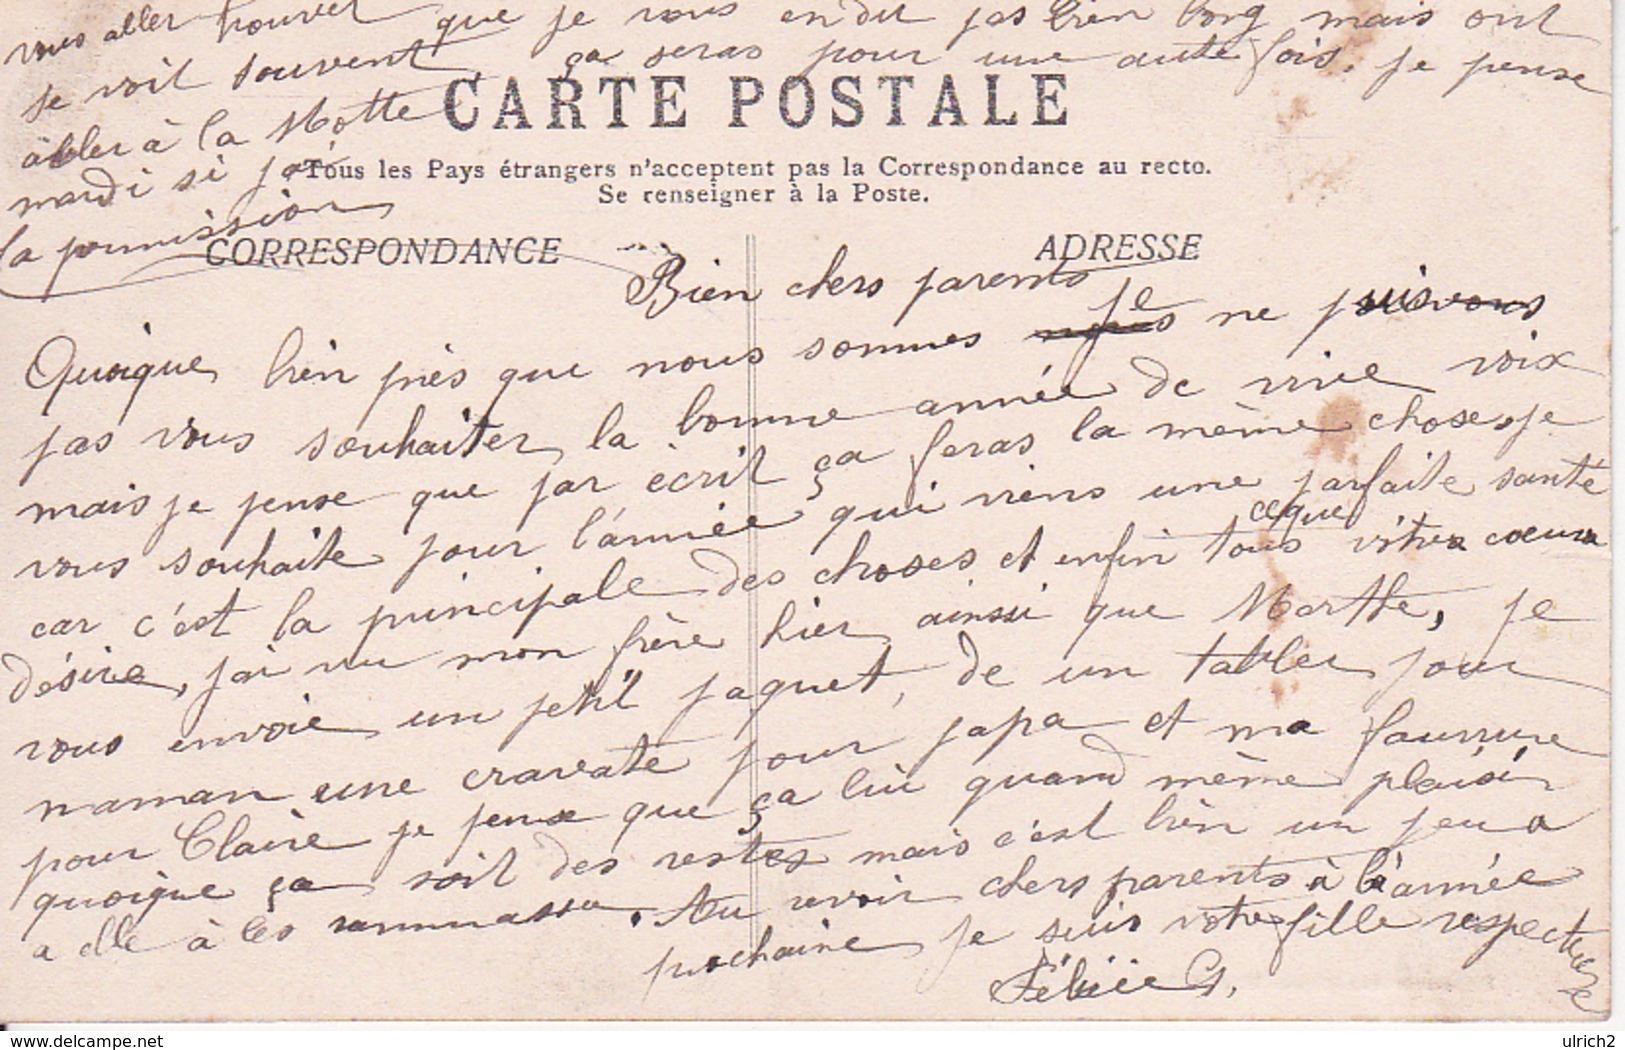 vous aller trouver que je vous en dit pas bien long mais ont
se voit souvent ça seras pour une autre fois, je pense
aller à la Motte
mardi si j'ai
la permission
CARTE POSTALE
Tous les Pays étrangers n'acceptent pas la Correspondance au recto.
Se renseigner à la Poste.
CORRESPONDANCE
ADRESSE
Bien chers parents
Quoique bien près que nous sommes je ne puis vous
pas vous souhaiter la bonne année de vive voix
mais je pense que par écrit ça feras la même chose, je
vous souhaite pour l'année qui viens une parfaite santé
car c'est la principale des choses et enfin tous ce que votre coeur
désire, j'ai vu mon frère hier ainsi que Marthe, je
vous envoie un petit paquet, de un tablier pour
maman une cravate pour papa et ma fourrure
pour Claire je pense que ça lui quand même plaisir
quoique ça soit des restes mais c'est bien un peu a
a elle à les rammasser. Au revoir chers parents à l'année
prochaine je suis votre fille respectueuse
Félicie G.
ulrich2